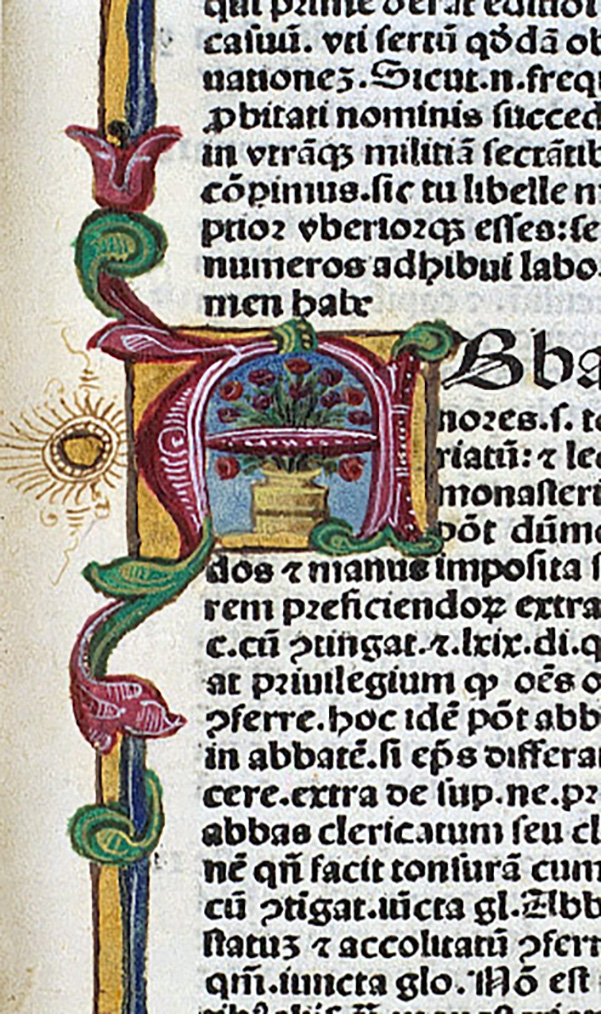 casuū. vti sertū qđdā ob
uationeʒ. Sicut.n.freq
ꝓbitati nominis succed
in vtrāqʒ militiā sectātib
cōpinius.sic tu libelle n
ptior vberiorqʒ esses:se
numeros adhibui labo
men habe
ABba
nores.s. te
riatū: ⁊ le
monasteri
pōt dūm
dos ⁊ manus imposita s
rem preficiendoꝝ extra
c.cū ꝯtingat.⁊.lxix.di.q
at priuilegium ꝙ oēs o
ꝯferre.hoc idē pōt abb
in abbatē.si ep̄s differa
cere.extra de sup.ne.pr
abbas clericatum seu cl
nē qn̄ facit tonsurā cum
cū ꝯtigat.iūcta gl. Abb
statuʒ ⁊ accolitatū ꝯferr
qm̄.iuncta glo. Nō est